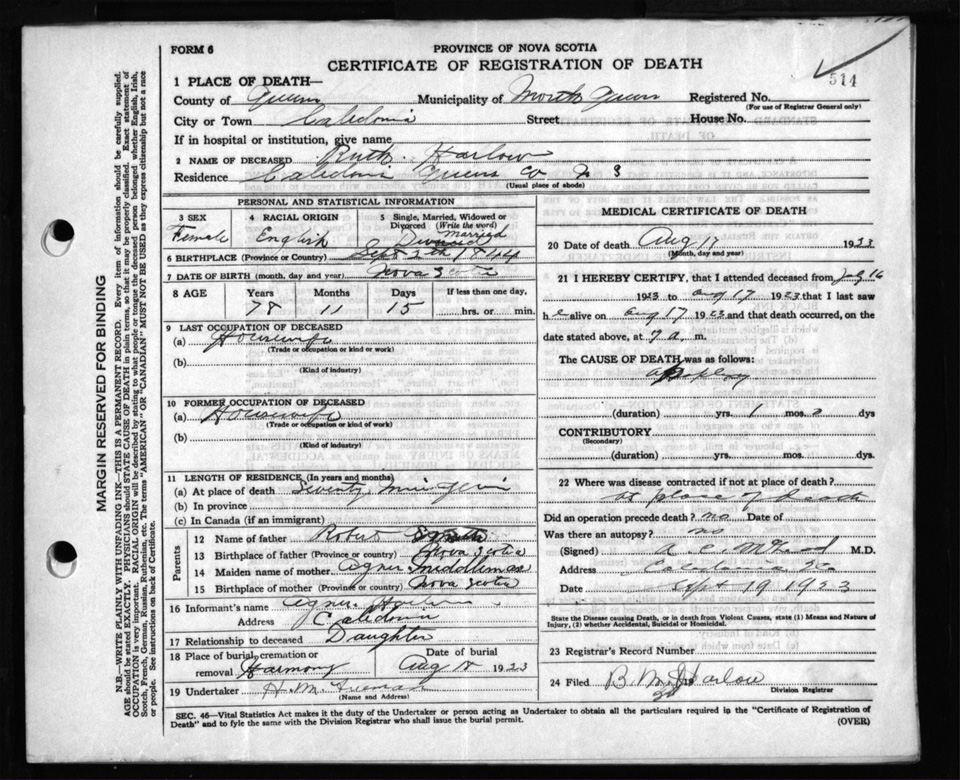 514
FORM 6
PROVINCE OF NOVA SCOTIA
CERTIFICATE OF REGISTRATION OF DEATH
1 PLACE OF DEATH—
County of Queens Municipality of North Queens Registered No.
(For use of Registrar General only)
City or Town Caledonia Street House No.
If in hospital or institution, give name
2 NAME OF DECEASED Ruth Harlow
Residence Caledonia Queens Co N S
(Usual place of abode)
PERSONAL AND STATISTICAL INFORMATION
3 SEX Female
4 RACIAL ORIGIN English
5 Single, Married, Widowed or Divorced (Write the word) Married
6 BIRTHPLACE (Province or Country) Sept 2th 1844
7 DATE OF BIRTH (month, day and year) Nova Scotia
8 AGE Years Months Days If less than one day,
78 11 15 hrs. or min.
9 LAST OCCUPATION OF DECEASED
(a) Housewife
(Trade or occupation or kind or work)
(b)
(Kind of industry)
10 FORMER OCCUPATION OF DECEASED
(a) Housewife
(Trade or occupation or kind of work)
(b)
(Kind of industry)
11 LENGTH OF RESIDENCE (In years and months)
(a) At place of death Seventy nine
(b) In province
(c) In Canada (if an immigrant)
Parents
12 Name of father Robert
13 Birthplace of father (Province or country) Nova Scotia
14 Maiden name of mother
15 Birthplace of mother (Province or country) Nova Scotia
16 Informant's name
Address Caledonia
17 Relationship to deceased Daughter
18 Place of burial, cremation or removal Harmony
Date of burial Aug 1923
19 Undertaker H. M. Freeman
(Name and Address)
MEDICAL CERTIFICATE OF DEATH
20 Date of death Aug 17 1923
(Month, day and year)
21 I HEREBY CERTIFY, that I attended deceased from July 16
1923 to Aug 17 1923 that I last saw
h e alive on Aug 17 1923 and that death occurred, on
date stated above, at 7 a. m.
The CAUSE OF DEATH was as follows:
Apoplexy
(duration) yrs. 1 mos. 2 dys
CONTRIBUTORY
(Secondary)
(duration) yrs. mos. dys.
22 Where was disease contracted if not at place of death?
at place of death
Did an operation precede death? no Date of
Was there an autopsy? no
(Signed) M.D.
Address Caledonia
Date Sept 19 1923
State the Disease causing Death, or in death from Violent Causes, state (1) Means and Nature of Injury, (2) whether Accidental, Suicidal or Homicidal.
23 Registrar's Record Number
24 Filed B. M. Harlow
Division Registrar
SEC. 46—Vital Statistics Act makes it the duty of the Undertaker or person acting as Undertaker to obtain all the particulars required in the "Certificate of Registration of
Death" and to fyle the same with the Division Registrar who shall issue the burial permit.
(OVER)
MARGIN RESERVED FOR BINDING
N.B.—WRITE PLAINLY WITH UNFADING INK—THIS IS A PERMANENT RECORD. Every item of information should be carefully supplied.
AGE should be stated EXACTLY. PHYSICIANS should STATE CAUSE OF DEATH in plain terms, so that it may be properly classified. Exact statement of
OCCUPATION is very important. RACIAL ORIGIN will be described by stating to what people or tongue the deceased person belonged whether English, Irish,
Scotch, French, German, Russian, Ruthenian, etc. The terms "AMERICAN" OR "CANADIAN" MUST NOT BE USED as they express citizenship but not a race
or people. See instructions on back of Certificate.